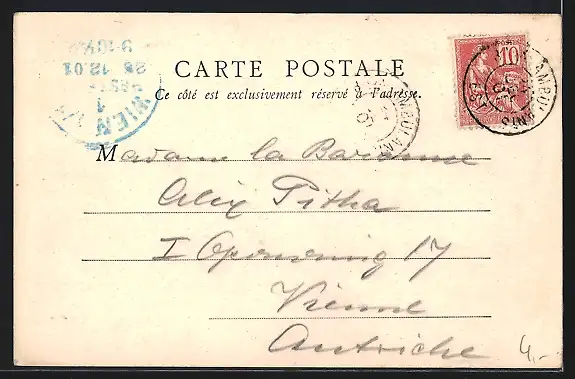 CARTE POSTALE
Ce côté est exclusivement réservé à l'adresse.
10
AMBULANT
AMBULANT
WIEN 1/1
1
28 12.01
Madame la Baronne
Alix Pitha
I Opernring 17
Vienne
Autriche
4,-